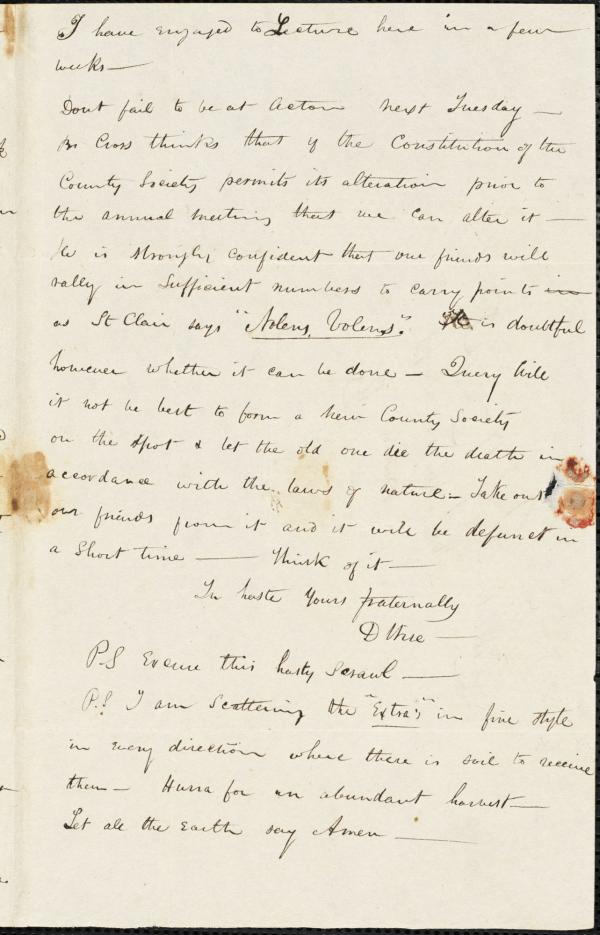 I have engaged to Lecture here in a few
weeks —
Dont fail to be at Acton next Tuesday —
Br Cross thinks that if the Constitution of the
County Society permits its alteration prior to
the annual meeting that we can alter it —
He is strongly confident that our friends will
rally in sufficient numbers to carry points in
as St Clair says "Nolens, Volens". It is doubtful
however whether it can be done — Query Will
it not be best to form a new County Society
on the spot & let the old one die the death in
accordance with the laws of nature — Take out
our friends from it and it will be defunct in
a Short time — think of it —
In haste Yours fraternally
D Wise —
P.S Excuse this hasty Scrawl —
P.S I am Scattering the "Extra's" in fine style
in every direction where there is soil to receive
them — Hurra for an abundant harvest —
Let all the Earth say Amen —